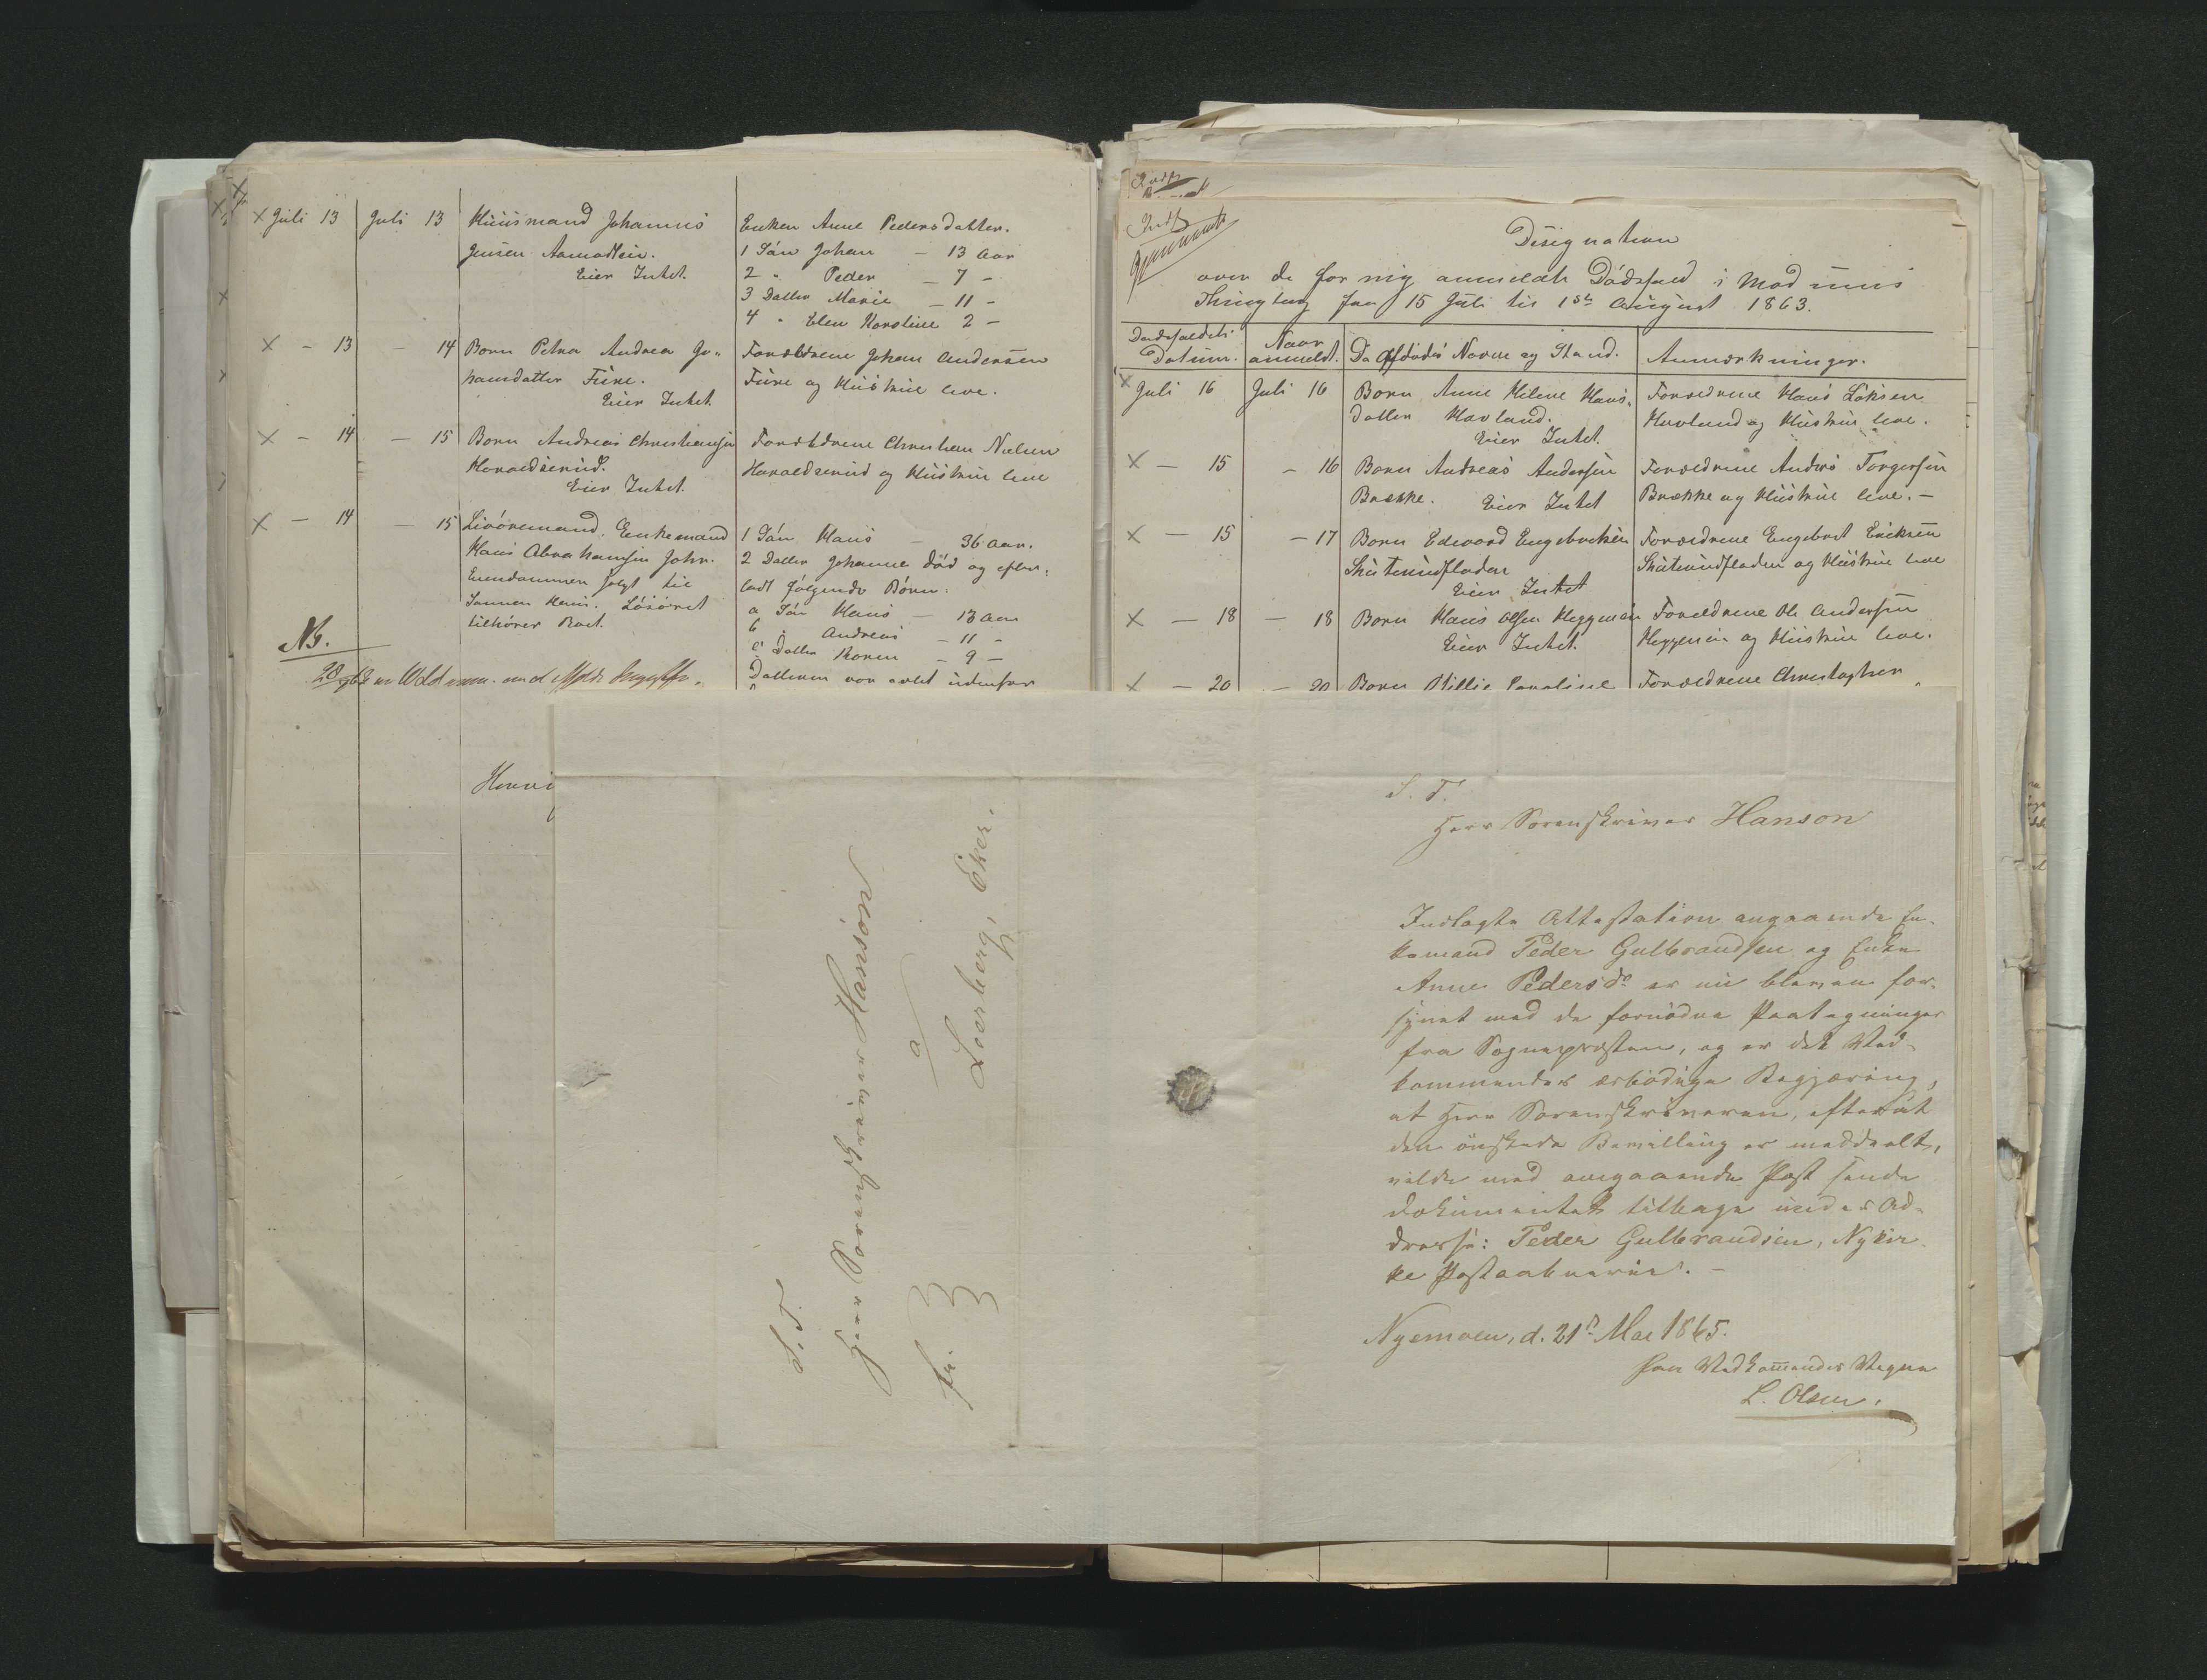 Juli 13 Juli 13 Huusmand Johannes
Jensen Aamodteie.
Eier Intet.
Enken Anne Pedersdatter.
1 Søn Johan — 13 Aar
2 " Peder — 7 —
3 Datter Marie — 11 —
4 " Elen Karoline 2 —
× — 13 — 14 Barn Petra Andrea Jo-
hansdatter Fure.
Eier Intet.
Forældrene Johan Andersen
Fure og Hustrue leve.
× — 14 — 15 Barn Andreas Christiansen
Haraldserud.
Eier Intet.
Forældrene Christian Nielsen
Haraldserud og Hustrue leve
× — 14 — 15 Enkemand
Hans Abrahamsen
Eiendommen solgt til
Sønnen Hans. Løsøret
tilhører Boet.
1 Søn Hans — 36 Aar.
2 Datter Johanne død og efter-
ladt følgende Børn:
a Søn Hans — 13 Aar
b " Andreas — 11 —
c Datter Karen — 9 —
Datteren var avlet udenfor
NB.
Designation
over de for mig anmeldte Dødsfald i Modums
Thinglag fra 15 Juli til 1ste August 1863.
Dødsfaldets
Datum.
Naar
anmeldt.
De Afdødes Navne og Stand.
Anmærkninger.
× Juli 16 Juli 16 Barn Anne Helene Hans-
datter Havland.
Eier Intet.
Forældrene Hans
Havland og Hustrue leve.
× — 15 — 16 Barn Andreas Andersen
Brække. Eier Intet
Forældrene Anders Torgersen
Brække og Hustrue leve. —
× — 15 — 17 Barn Edvard Engebretsen
Skuterudfladen
Eier Intet
Forældrene Engebret Ericksen
Skuterudfladen og Hustrue leve
× — 18 — 18 Barn Hans Olsen
Eier Intet.
Forældrene Ole Andersen
og Hustrue leve.
× — 20 — 20 Barn Caroline
Forældrene Christopher
S. T.
Herr Sorenskriver Hanson
a
Loerberg, Eker.
fr.
S. T.
Herr Sorenskriver Hanson
Indlagte Attestation angaaende En-
kemand Peder Gulbrandsen og Enke
Anne Pedersdr. er nu bleven for-
synet med de fornødne Paategninger
fra Sognepresten, og er det Ved-
kommendes ærbødige Begjæring,
at Herr Sorenskriveren, efterat
den ønskede Bevilling er meddeelt,
vilde med omgaaende Post sende
Dokumentet tilbage under Ad-
dresse: Peder Gulbrandsen, Nykir-
ke Postaabneri. —
Nyemoen, d. 21de Mai 1865.
Paa Vedkommendes Vegne
L. Olsen.